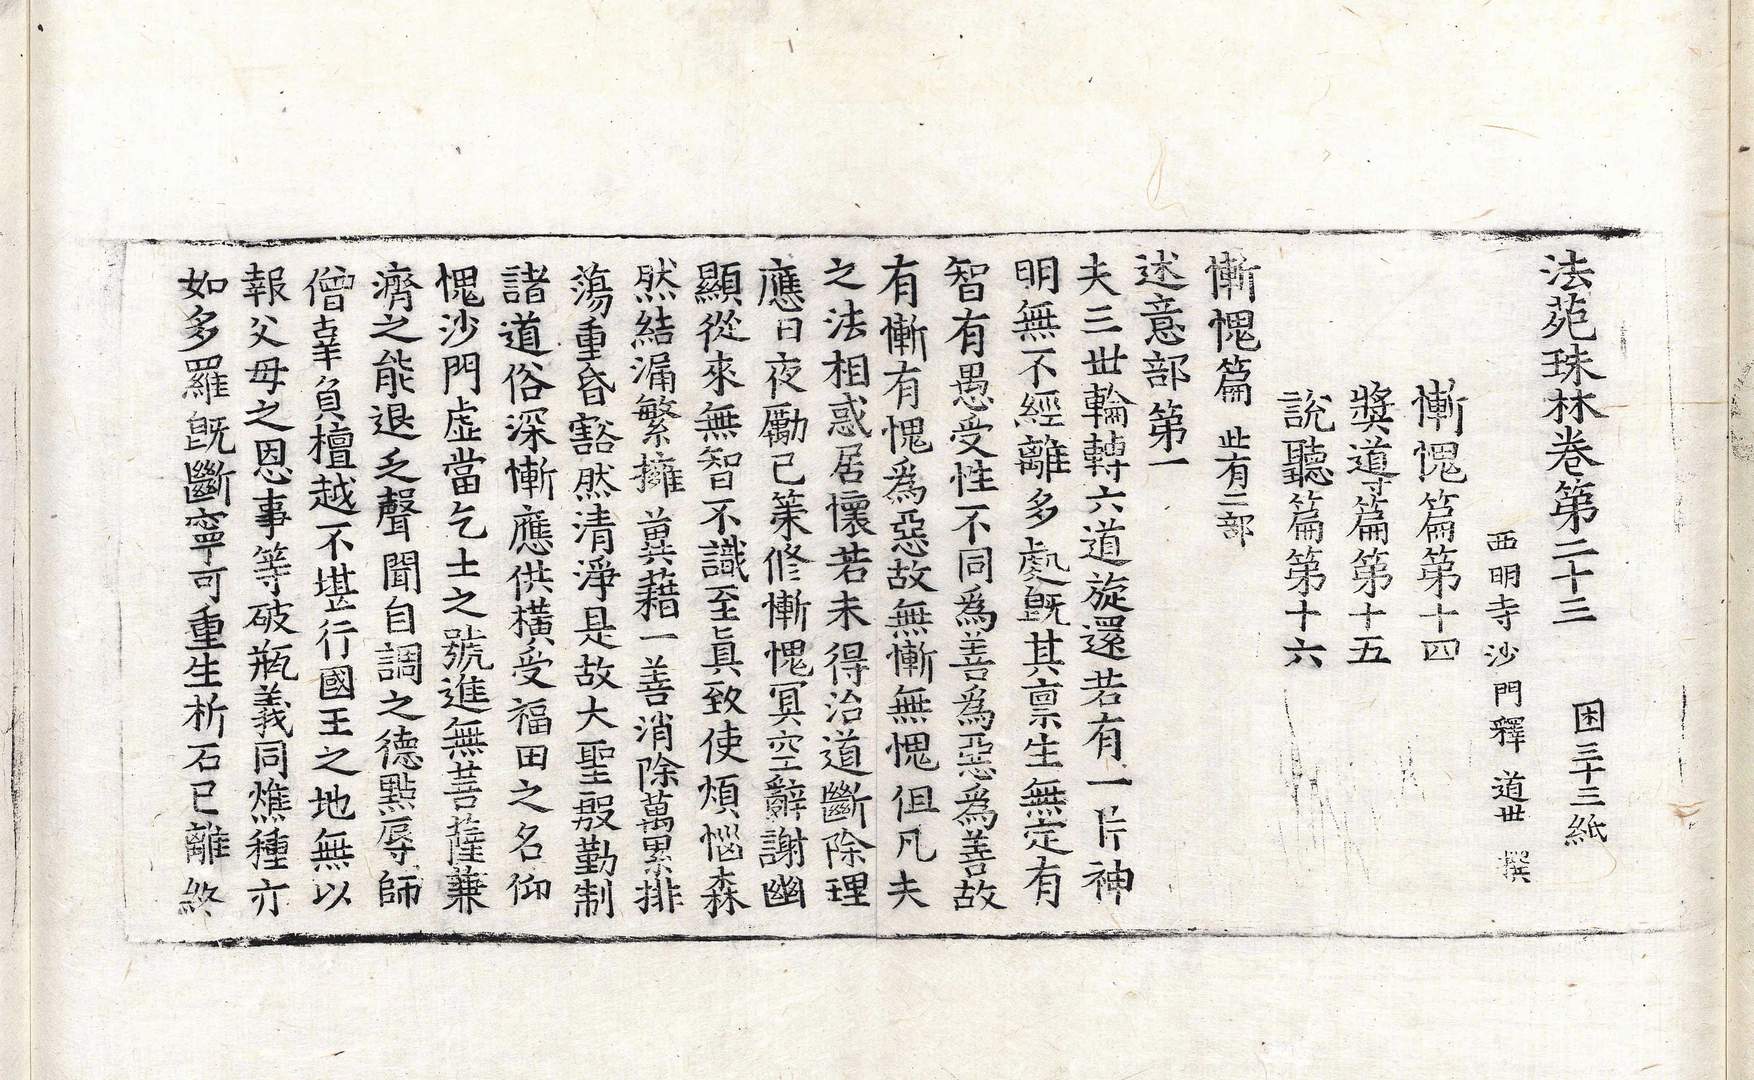 法苑珠林卷第二十三 困三十三紙
西明寺沙門釋 道世 撰
慚愧篇第十四
奬導篇第十五
說聽篇第十六
慚愧篇 此有二部
述意部第一
夫三世輪轉六道旋還若有一片神
明無不經離多處旣其稟生無定有
智有愚受性不同為善為惡為善故
有慚有愧為惡故無慚無愧但凡夫
之法相惑居懷若未得治道斷除理
應日夜勵己策修慚愧冥空辭謝幽
顯從來無智不識至眞致使煩惱森
然結漏繁擁兾藉一善消除萬累排
蕩重昏豁然清淨是故大聖殷勤制
諸道俗深慚應供橫受福田之名仰
愧沙門虛當乞士之號進無菩薩兼
濟之能退乏聲聞自調之德黙辱師
僧幸負檀越不堪行國王之地無以
報父母之恩事等破瓶義同燋種亦
如多羅旣斷寧可重生析石已離終